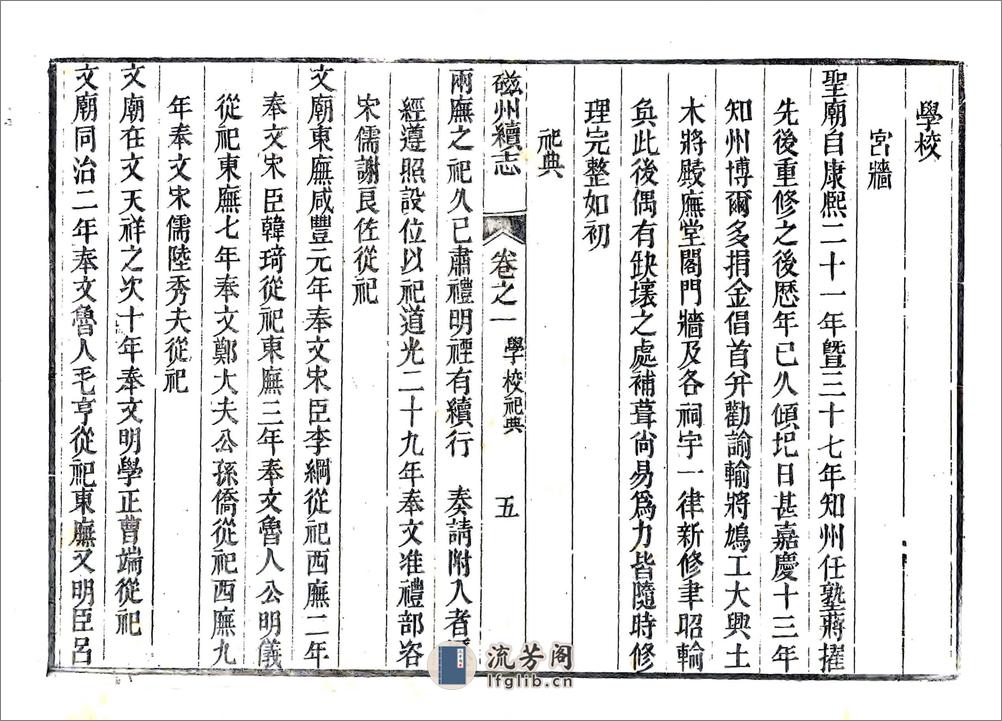 學校
宮牆
聖廟自康熙二十一年暨三十七年知州任塾蔣擢
先後重修之後歷年已久傾圮日甚嘉慶十三年
知州博爾多捐金倡首弁勸諭輸將鳩工大興土
木將殿廡堂閣門牆及各祠宇一律新修聿昭輪
奐此後偶有缺壞之處補葺尙易爲力皆隨時修
理完整如初
祀典
磁州續志 卷之一 學校祀典 五
兩廡之祀久已肅禮明禋有續行 奏請附入者
經遵照設位以祀道光二十九年奉文准禮部咨
宋儒謝良佐從祀
文廟東廡咸豐元年奉文宋臣李綱從祀西廡二年
奉文宋臣韓琦從祀東廡三年奉文魯人公明儀
從祀東廡七年奉文鄭大夫公孫僑從祀西廡九
年奉文宋儒陸秀夫從祀
文廟在文天祥之次十年奉文明學正曹端從祀
文廟同治二年奉文魯人毛亨從祀東廡又明臣呂
流芳阁
lfglib.cn